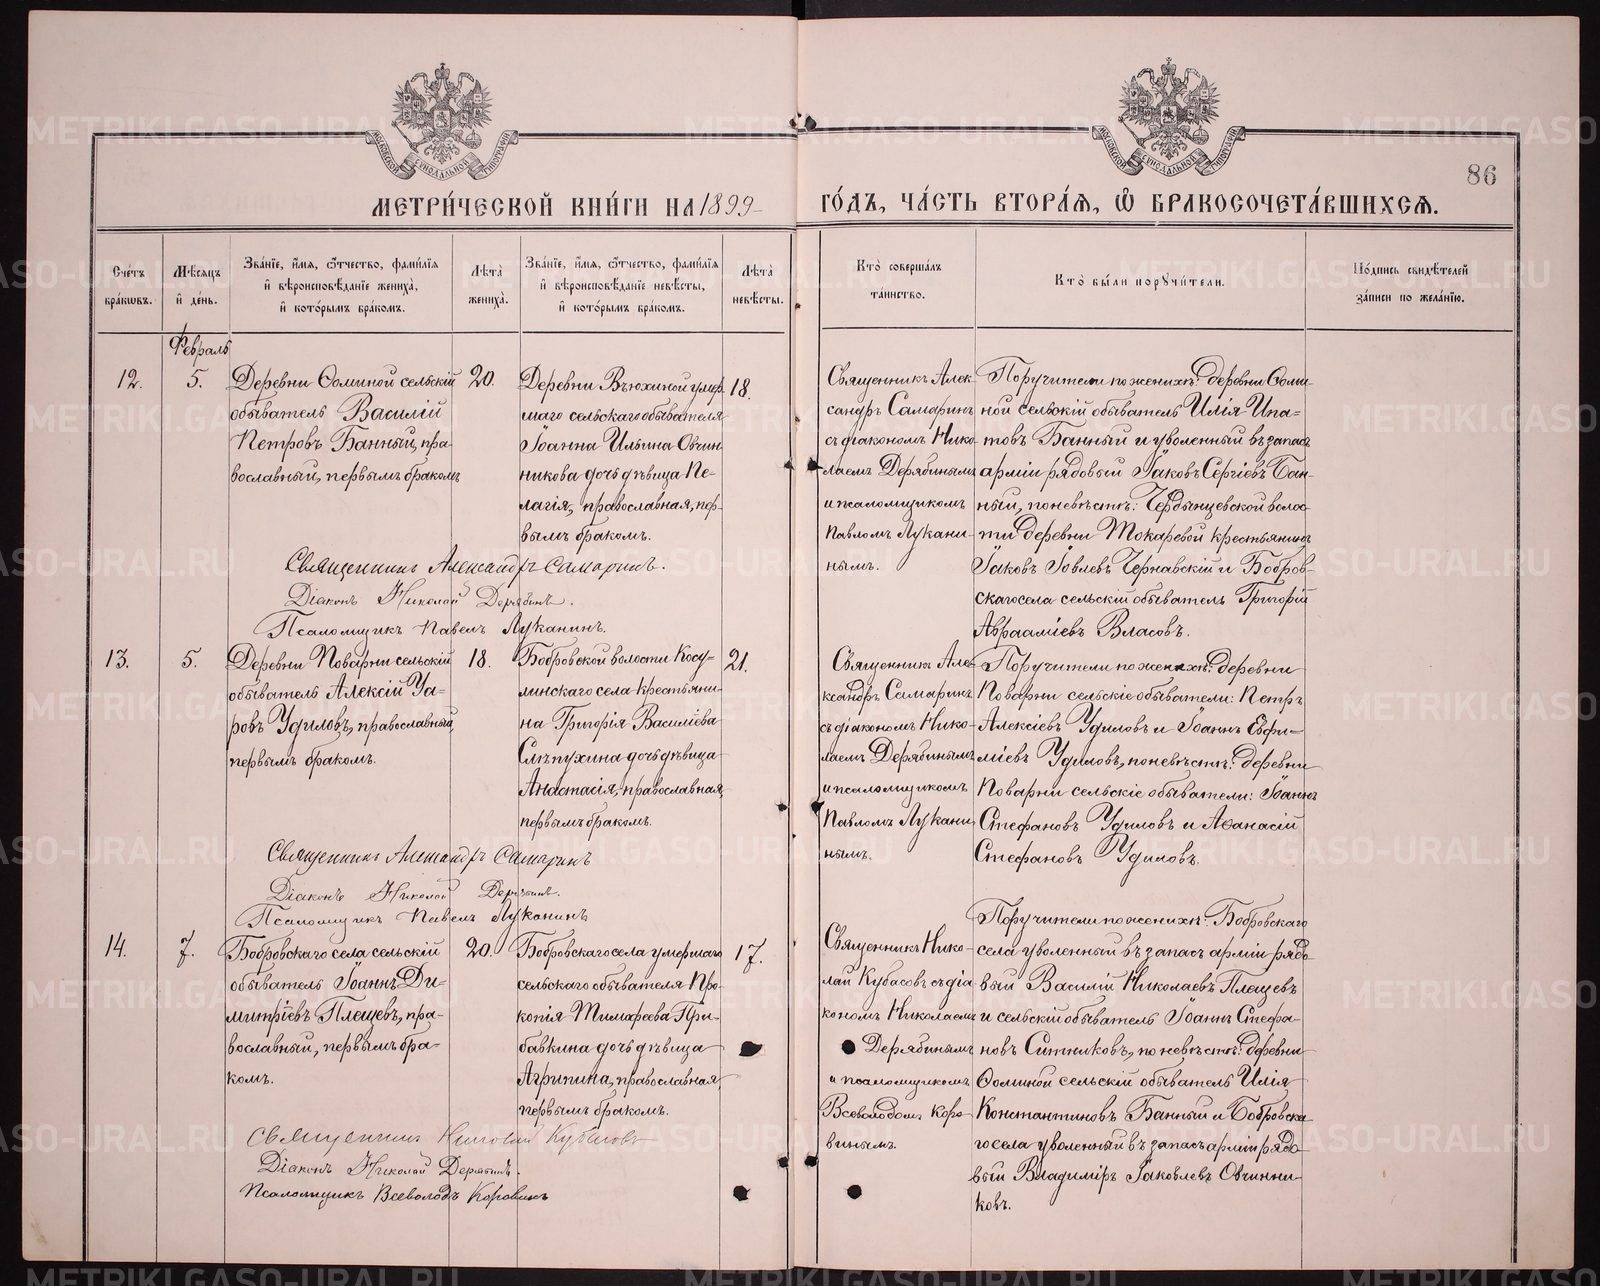 МОСКОВСКОЙ СУНОДАЛЬНОЙ ТИПОГРАФІИ
МОСКОВСКОЙ СУНОДАЛЬНОЙ ТИПОГРАФІИ
86
МЕТРИ́ЧЕСКОЙ КНИ́ГИ НА 1899
ГО́ДЪ, ЧА́СТЬ ВТОРА́Я, Ѽ БРАКОСОЧЕТА́ВШИХСЯ.
Сче́тъ бра́кѡвъ.
Мѣ́сяцъ и҆ де́нь.
Зва́нїе, и҆́мя, ѻ҆́тчество, фами́лїя
и҆ вѣроисповѣ́данїе жениха̀,
и҆ кото́рымъ бра́комъ.
Лѣ́та жениха̀.
Зва́нїе, и҆́мя, ѻ҆́тчество, фами́лїя
и҆ вѣроисповѣ́данїе невѣ́сты,
и҆ кото́рымъ бра́комъ.
Лѣ́та невѣ́сты.
Кто̀ соверша́лъ
та́инство.
Кто̀ бы́ли порꙋчи́тели.
По́дпись свидѣ́телей
за́писи по жела́нїю.
Февраль
12.
5.
Деревни Ѳоминой сельскій
обыватель Василій
Петровъ Банный, пра-
вославный, первымъ бракомъ
20.
Деревни Вьюхиной умер-
шаго сельскаго обывателя
Іоанна Ильина Овчин-
никова дочь дѣвица Пе-
лагія, православная, пер-
вымъ бракомъ.
18.
Священникъ Алек-
сандръ Самаринъ
съ діакономъ Нико-
лаемъ Дерябинымъ
и псаломщикомъ
Павломъ Лукани-
нымъ.
Поручители по женихѣ: деревни Ѳоми-
ной сельскій обыватель Илія Ипа-
товъ Банный и уволенный въ запасъ
арміи рядовый Іаковъ Сергіевъ Бан-
ный, по невѣстѣ: Чердынцевской волос-
ти деревни Токаревой крестьянинъ
Іаковъ Іовлевъ Чернавскій и Бобров-
скаго села сельскій обыватель Григорій
Авраамiевъ Власовъ.
Священникъ Александръ Самаринъ.
Діаконъ Николай Дерябинъ.
Псаломщикъ Павелъ Луканинъ.
13.
5.
Деревни Поварни сельскій
обыватель Алексій Ува-
ровъ Удиловъ, православный,
первымъ бракомъ.
18.
Бобровской волости Косу-
линскаго села крестьяни-
на Григорія Василіева
Слѣпухина дочь дѣвица
Анастасія, православная,
первымъ бракомъ.
21.
Священникъ Але-
ксандръ Самаринъ
съ діакономъ Нико-
лаемъ Дерябинымъ
и псаломщикомъ
Павломъ Лукани-
нымъ.
Поручители по женихѣ: деревни
Поварни сельскіе обыватели: Петръ
Алексіевъ Удиловъ и Іоаннъ Евфи-
міевъ Удиловъ, по невѣстѣ: деревни
Поварни сельскіе обыватели: Іоаннъ
Стефановъ Удиловъ и Аѳанасій
Стефановъ Удиловъ.
Священникъ Александръ Самаринъ
Діаконъ Николай Дерябинъ.
Псаломщикъ Павелъ Луканинъ
14.
7.
Бобровскаго села сельскій
обыватель Іоаннъ Ди-
митріевъ Плещевъ, пра-
вославный, первымъ бра-
комъ.
20.
Бобровскаго села умершаго
сельскаго обывателя Про-
копія Тимофеева При-
бавкина дочь дѣвица
Агрипина, православная,
первымъ бракомъ.
17.
Священникъ Нико-
лай Кубасовъ съ діа-
кономъ Николаемъ
Дерябинымъ
и псаломщикомъ
Всеволодомъ Коро-
винымъ.
Поручители по женихѣ: Бобровскаго
села уволенный въ запасъ арміи рядо-
вый Василій Николаевъ Плещевъ
и сельскій обыватель Іоаннъ Стефа-
новъ Ситниковъ, по невѣстѣ: деревни
Ѳоминой сельскій обыватель Илія
Константиновъ Банный и Бобровска-
го села уволенный въ запасъ арміи рядо-
вый Владиміръ Іаковлевъ Овчинни-
ковъ.
Священникъ Николай Кубасовъ
Діаконъ Николай Дерябинъ.
Псаломщикъ Всеволодъ Коровинъ
METRIKI.GASO-URAL.RU